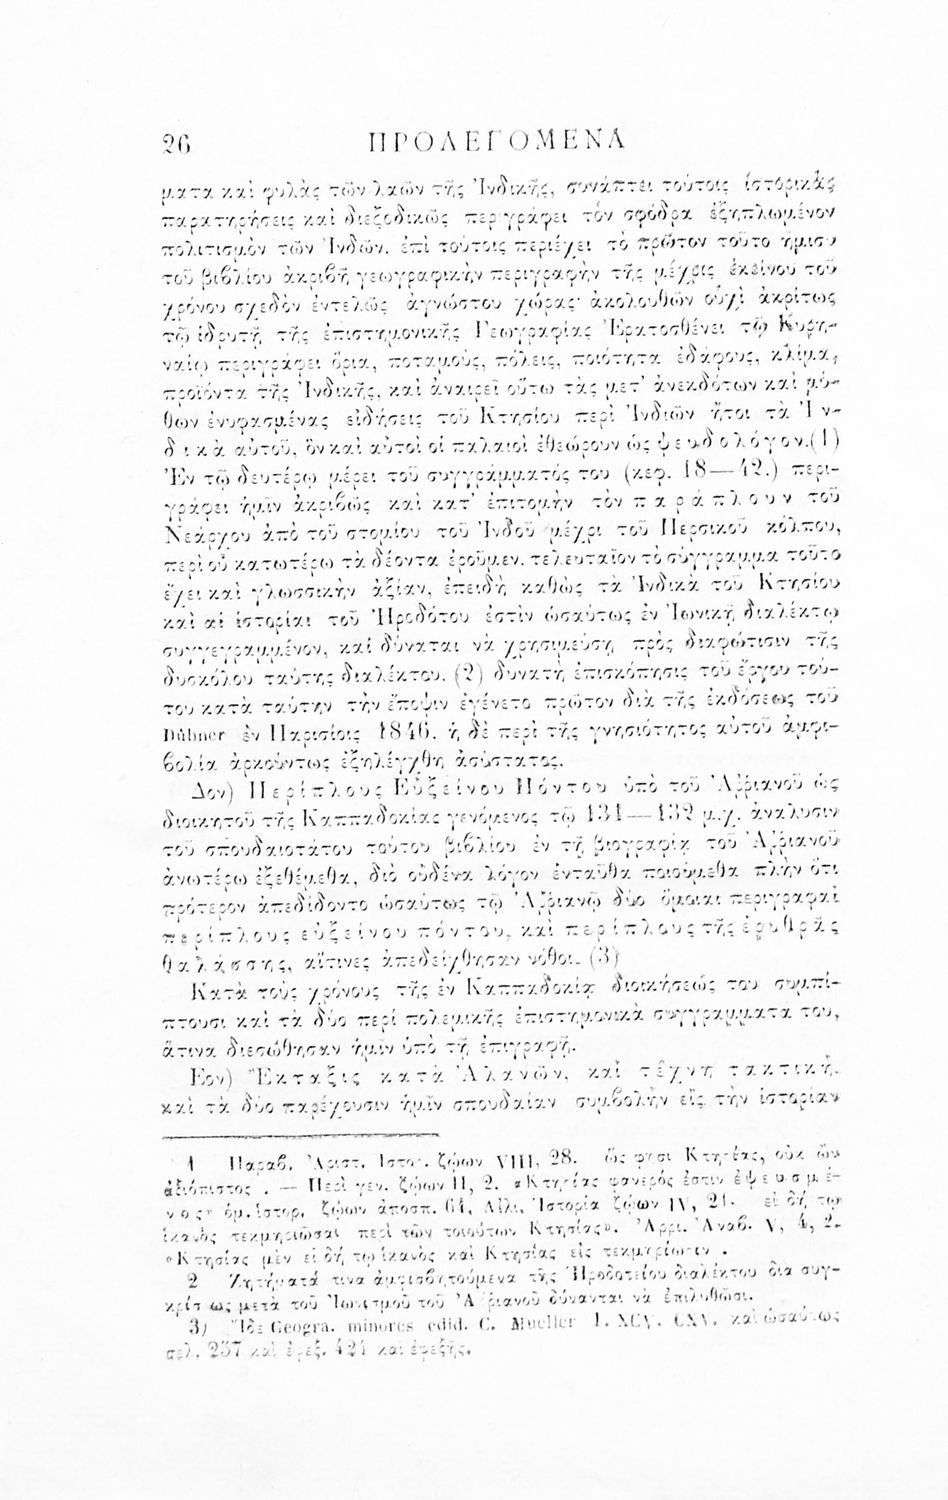 26 ΠΡΟΛΕΓΟΜΕΝΑ
ματα καὶ φυλὰς τῶν λαῶν τῆς Ἰνδικῆς, συνάπτει τούτοις ἱστορικὰς
παρατηρήσεις καὶ διεξοδικῶς περιγράφει τὸν σφόδρα ἐξηπλωμένον
πολιτισμὸν τῶν Ἰνδῶν. ἐπὶ τούτοις περιέχει τὸ πρῶτον τοῦτο ἥμισυ
τοῦ βιβλίου ἀκριβῆ γεωγραφικὴν περιγραφὴν τῆς μέχρις ἐκείνου τοῦ
χρόνου σχεδὸν ἐντελῶς ἀγνώστου χώρας· ἀκολουθῶν οὐχὶ ἀκρίτως
τῷ ἱδρυτῇ τῆς ἐπιστημονικῆς Γεωγραφίας Ἐρατοσθένει τῷ Κυρη-
ναίῳ περιγράφει ὅρια, ποταμούς, πόλεις, ποιότητα ἐδάφους, κλίμα,
προϊόντα τῆς Ἰνδικῆς, καὶ ἀναιρεῖ οὕτω τὰς μετ' ἀνεκδότων καὶ μύ-
θων ἐνυφασμένας εἰδήσεις τοῦ Κτησίου περὶ Ἰνδιῶν ἤτοι τὰ Ἰν-
δικὰ αὐτοῦ, ὃν καὶ αὐτοὶ οἱ παλαιοὶ ἐθεώρουν ὡς ψευδολόγον.(1)
Ἐν τῷ δευτέρῳ μέρει τοῦ συγγράμματός του (κεφ. 18—42.) περι-
γράφει ἡμῖν ἀκριβῶς καὶ κατ' ἐπιτομὴν τὸν παράπλουν τοῦ
Νεάρχου ἀπὸ τοῦ στομίου τοῦ Ἰνδοῦ μέχρι τοῦ Περσικοῦ κόλπου,
περὶ οὗ κατωτέρω τὰ δέοντα ἐροῦμεν. τελευταῖον τὸ σύγγραμμα τοῦτο
ἔχει καὶ γλωσσικὴν ἀξίαν, ἐπειδὴ καθὼς τὰ Ἰνδικὰ τοῦ Κτησίου
καὶ αἱ ἱστορίαι τοῦ Ἡροδότου ἐστὶν ὡσαύτως ἐν Ἰωνικῇ διαλέκτῳ
συγγεγραμμένον, καὶ δύναται νὰ χρησιμεύσῃ πρὸς διαφώτισιν τῆς
δυσκόλου ταύτης διαλέκτου. (2) δυνατὴ ἐπισκόπησις τοῦ ἔργου τού-
του κατὰ ταύτην τὴν ἔποψιν ἐγένετο πρῶτον διὰ τῆς ἐκδόσεως τοῦ
Dübner ἐν Παρισίοις 1846. ἡ δὲ περὶ τῆς γνησιότητος αὐτοῦ ἀμφι-
βολία ἀρκούντως ἐξηλέγχθη ἀσύστατος.
Δον) Περίπλους Εὐξείνου Πόντου ὑπὸ τοῦ Ἀῤῥιανοῦ ὡς
διοικητοῦ τῆς Καππαδοκίας γενόμενος τῷ 131—132 μ.χ. ἀνάλυσιν
τοῦ σπουδαιοτάτου τούτου βιβλίου ἐν τῇ βιογραφίᾳ τοῦ Ἀῤῥιανοῦ
ἀνωτέρω ἐξεθέμεθα, διὸ οὐδένα λόγον ἐνταῦθα ποιούμεθα πλὴν ὅτι
πρότερον ἀπεδίδοντο ὡσαύτως τῷ Ἀῤῥιανῷ δύο ὅμοιαι περιγραφαὶ
περίπλους εὐξείνου πόντου, καὶ περίπλους τῆς ἐρυθρᾶς
θαλάσσης, αἵτινες ἀπεδείχθησαν νόθοι. (3)
Κατὰ τοὺς χρόνους τῆς ἐν Καππαδοκίᾳ διοικήσεώς του συμπί-
πτουσι καὶ τὰ δύο περὶ πολεμικῆς ἐπιστημονικὰ συγγράμματα του,
ἅτινα διεσώθησαν ἡμῖν ὑπὸ τῇ ἐπιγραφῇ.
Εον) Ἔκταξις κατὰ Ἀλανῶν, καὶ τέχνη τακτική.
καὶ τὰ δύο παρέχουσιν ἡμῖν σπουδαίαν συμβολὴν εἰς τὴν ἱστορίαν
1 Παραβ. Ἀριστ. Ἱστορ. ζῴων VIII, 28. ὥς φησι Κτησίας, οὐκ ὢν
ἀξιόπιστος . — Περὶ γεν. ζῴων II, 2. «Κτησίας φανερός ἐστιν ἐψευσμέ-
νος» ὁμ. ἱστορ. ζῴων ἀποσπ. 64, Αἰλ. Ἱστορία ζῴων IV, 21. εἰ δή τῳ
ἱκανὸς τεκμηριῶσαι περὶ τῶν τοιούτων Κτησίας». Ἀρρι. Ἀναβ. V, 4, 2.
«Κτησίας μὲν εἰ δή τῳ ἱκανὸς καὶ Κτησίας εἰς τεκμηρίωσιν .
2 Ζητήματά τινα ἀμφισβητούμενα τῆς Ἡροδοτείου διαλέκτου διὰ συγ-
κρίσεως μετὰ τοῦ Ἰωνισμοῦ τοῦ Ἀῤῥιανοῦ δύνανται νὰ ἐπιλυθῶσι.
3) Ἴδε Geogra. minores edid. C. Mueller I. XCV. CXV. καὶ ὡσαύτως
σελ. 257 καὶ ἐφεξ. 421 καὶ ἐφεξῆς.